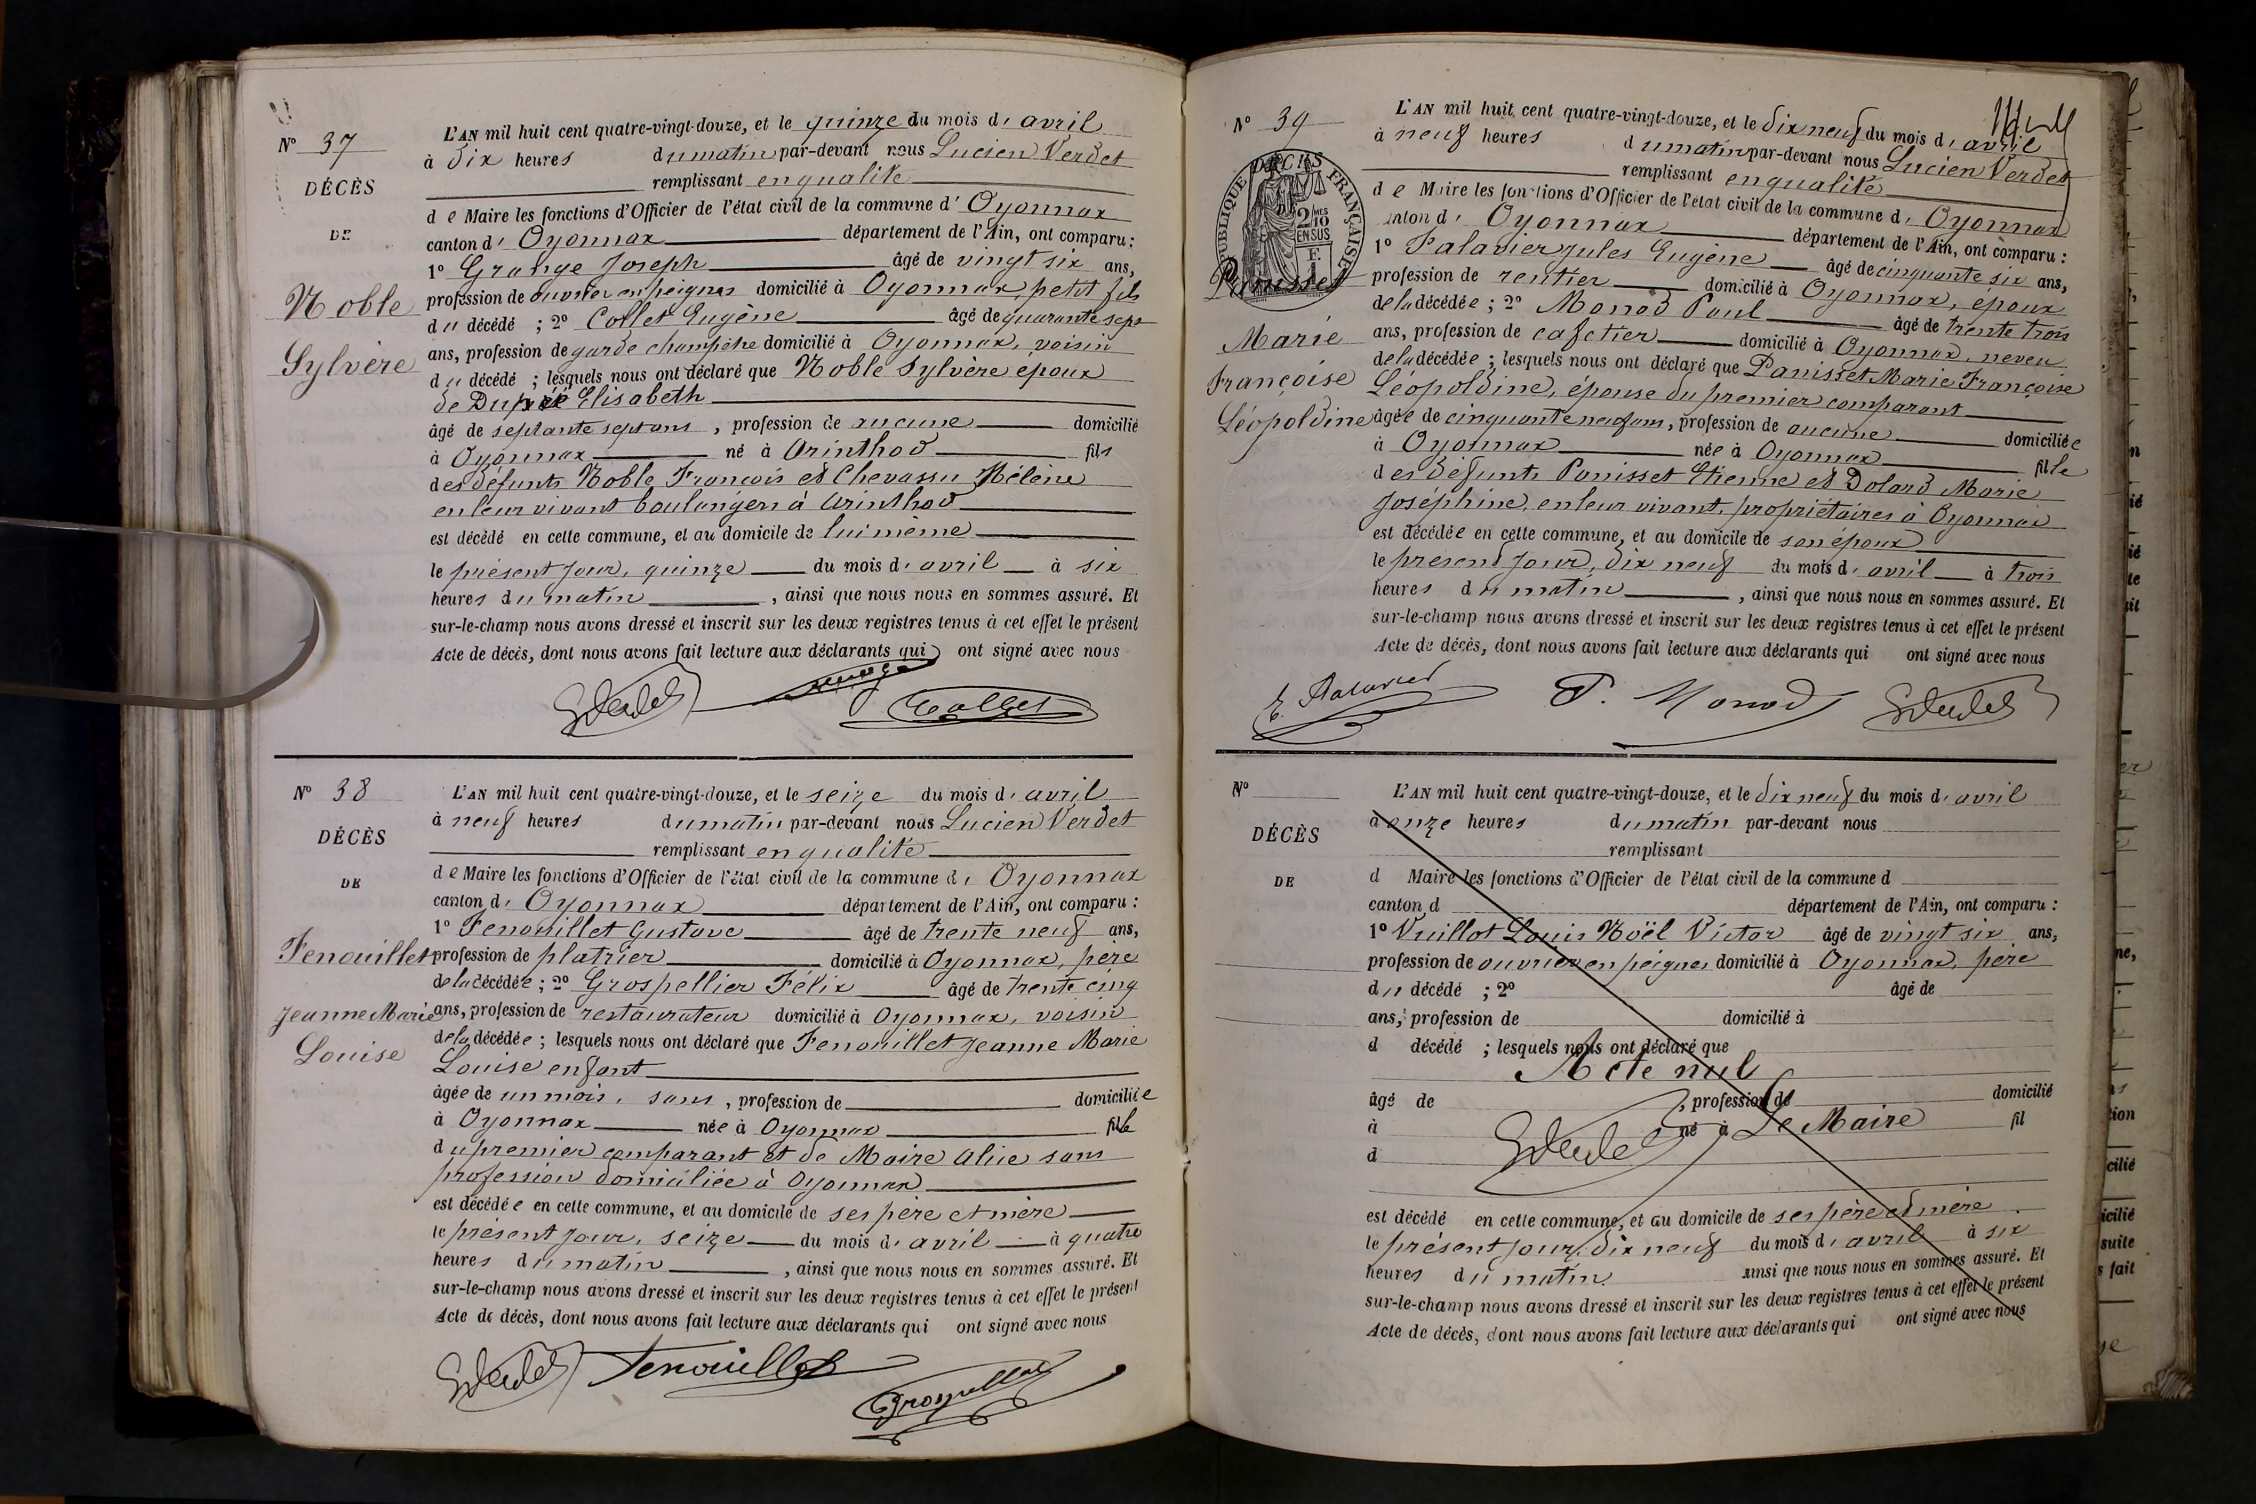 N° 37
DÉCÈS
DE
Noble
Sylvère
L'AN mil huit cent quatre-vingt-douze, et le quinze du mois d' avril
à dix heures du matin par-devant nous Lucien Verdet
remplissant en qualité
de Maire les fonctions d'Officier de l'état civil de la commune d' Oyonnax
canton d' Oyonnax département de l'Ain, ont comparu :
1° Grange Joseph âgé de vingt six ans,
profession de ouvrier en peignes domicilié à Oyonnax, petit fils
du décédé ; 2° Collet Eugène âgé de quarante sept
ans, profession de garde champêtre domicilié à Oyonnax, voisin
du décédé ; lesquels nous ont déclaré que Noble Sylvère époux
de Dupré Elisabeth
âgé de septante sept ans, profession de aucune domicilié
à Oyonnax né à Arinthod fils
des défunts Noble François et Chevassu Hélène
en leur vivant boulangers à Arinthod
est décédé en cette commune, et au domicile de lui même
le présent jour, quinze du mois d' avril à six
heures du matin, ainsi que nous nous en sommes assuré. Et
sur-le-champ nous avons dressé et inscrit sur les deux registres tenus à cet effet le présent
Acte de décès, dont nous avons fait lecture aux déclarants qui ont signé avec nous
Collet
N° 38
DÉCÈS
DE
Fenouillet
Jeanne Marie
Louise
L'AN mil huit cent quatre-vingt-douze, et le seize du mois d' avril
à neuf heures du matin par-devant nous Lucien Verdet
remplissant en qualité
de Maire les fonctions d'Officier de l'état civil de la commune d' Oyonnax
canton d' Oyonnax département de l'Ain, ont comparu :
1° Fenouillet Gustave âgé de trente neuf ans,
profession de platrier domicilié à Oyonnax, père
de la décédée ; 2° Grospellier Félix âgé de trente cinq
ans, profession de restaurateur domicilié à Oyonnax, voisin
de la décédée ; lesquels nous ont déclaré que Fenouillet Jeanne Marie
Louise enfant
âgée de un mois, sans, profession de domiciliée
à Oyonnax née à Oyonnax fille
du premier comparant et de Maire Alice sans
profession domiciliée à Oyonnax
est décédée en cette commune, et au domicile de ses père et mère
le présent jour, seize du mois d' avril à quatre
heures du matin, ainsi que nous nous en sommes assuré. Et
sur-le-champ nous avons dressé et inscrit sur les deux registres tenus à cet effet le présent
Acte de décès, dont nous avons fait lecture aux déclarants qui ont signé avec nous
Fenouillet
Grospellier
N° 39
DÉCÈS
RÉPUBLIQUE FRANÇAISE
2/10
EN SUS
Panisset
Marie
Françoise
Léopoldine
L'AN mil huit cent quatre-vingt-douze, et le dix neuf du mois d' avril
à neuf heures du matin par-devant nous Lucien Verdet
remplissant en qualité
de Maire les fonctions d'Officier de l'état civil de la commune d' Oyonnax
canton d' Oyonnax département de l'Ain, ont comparu :
1° Palavier Jules Eugène âgé de cinquante six ans,
profession de rentier domicilié à Oyonnax, époux
de la décédée ; 2° Monod Paul âgé de trente trois
ans, profession de cafetier domicilié à Oyonnax, neveu
de la décédée ; lesquels nous ont déclaré que Panisset Marie Françoise
Léopoldine, épouse du premier comparant
âgée de cinquante neuf ans, profession de aucune domiciliée
à Oyonnax née à Oyonnax fille
des défunts Panisset Etienne et Dolard Marie
Joséphine, en leur vivant, propriétaires à Oyonnax
est décédée en cette commune, et au domicile de son époux
le présent jour, dix neuf du mois d' avril à trois
heures du matin, ainsi que nous nous en sommes assuré. Et
sur-le-champ nous avons dressé et inscrit sur les deux registres tenus à cet effet le présent
Acte de décès, dont nous avons fait lecture aux déclarants qui ont signé avec nous
E. Palavier P. Monod
N°
DÉCÈS
DE
L'AN mil huit cent quatre-vingt-douze, et le dix neuf du mois d' avril
à onze heures du matin par-devant nous
remplissant
d Maire les fonctions d'Officier de l'état civil de la commune d
canton d département de l'Ain, ont comparu :
1° Vuillot Louis Noël Victor âgé de vingt six ans,
profession de ouvrier en peignes domicilié à Oyonnax, père
du décédé ; 2° âgé de
ans, profession de domicilié à
d décédé ; lesquels nous ont déclaré que
Acte nul
âgé de, profession de domicilié
à né à Le Maire fil
d
est décédé en cette commune, et au domicile de ses père et mère
le présent jour, dix neuf du mois d' avril à six
heures du matin ainsi que nous nous en sommes assuré. Et
sur-le-champ nous avons dressé et inscrit sur les deux registres tenus à cet effet le présent
Acte de décès, dont nous avons fait lecture aux déclarants qui ont signé avec nous